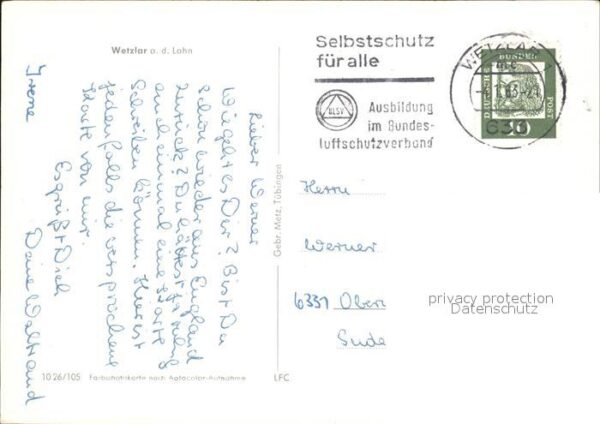 Wetzlar a. d. Lahn
Lieber Werner
Wie geht es Dir? Bist Du
schon wieder aus England
zurück? Du hättest ja ruhig
auch einmal eine Karte
schreiben können. Hier ist
jedenfalls die versprochene
Karte von mir.
Es grüßt Dich
Deine Waltraud
Irene
10 26/105 Farbphotokarte nach Agfacolor-Aufnahme
LFC
Gebr. Metz, Tübingen
Selbstschutz
für alle
BLSV
Ausbildung
im Bundes-
luftschutzverband
WETZLAR
63-21
630
DEUTSCHE
BUNDES
POST
10
Herrn
Werner
6331 Ober
privacy protection
Datenschutz